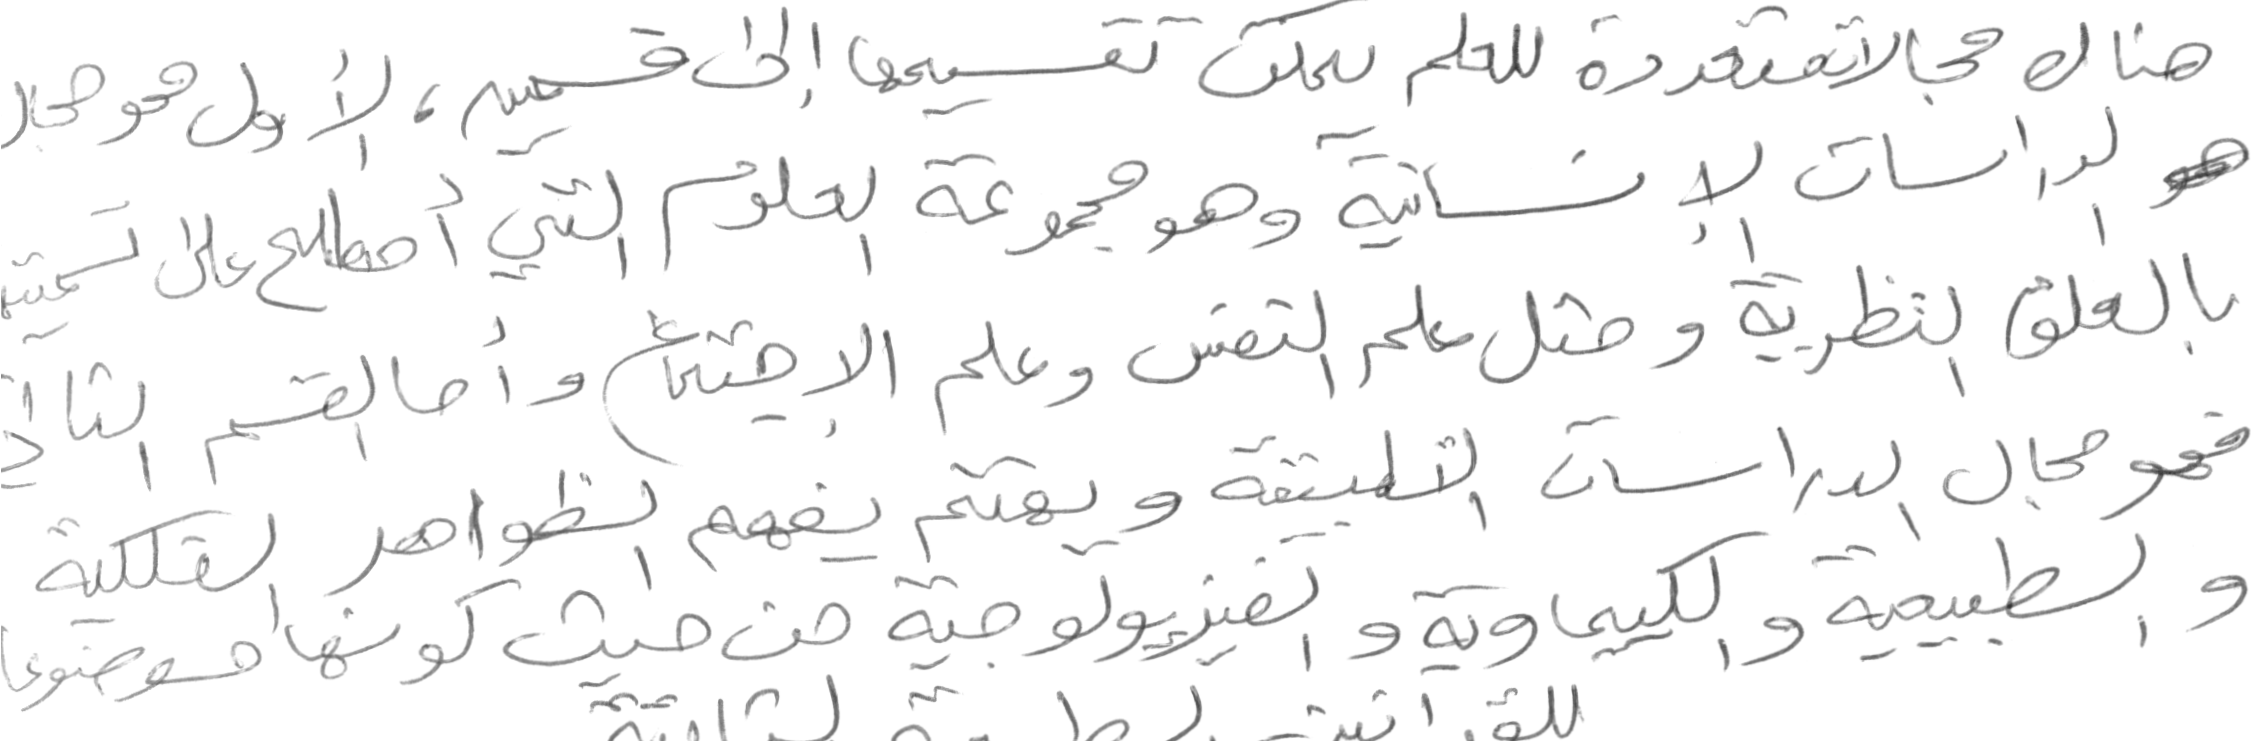 هناك مجالات متعددة للعلم يمكن تقسيمها إلى قسمين ، الأول هو مجال
الدراسات الإنسانية وهو مجموعة العلوم التي أصطلح على تسميتها
بالعلوم النظرية ومثل علم النفس وعلم الاجتماع وأما القسم الثاني
فهو مجال الدراسات التطبيقية ويهتم بفهم الظواهر الفلكية
والطبيعية والكيماوية والفيزيولوجية من حيث كونها موضوعا
للقوانين الطبيعية الثابتة